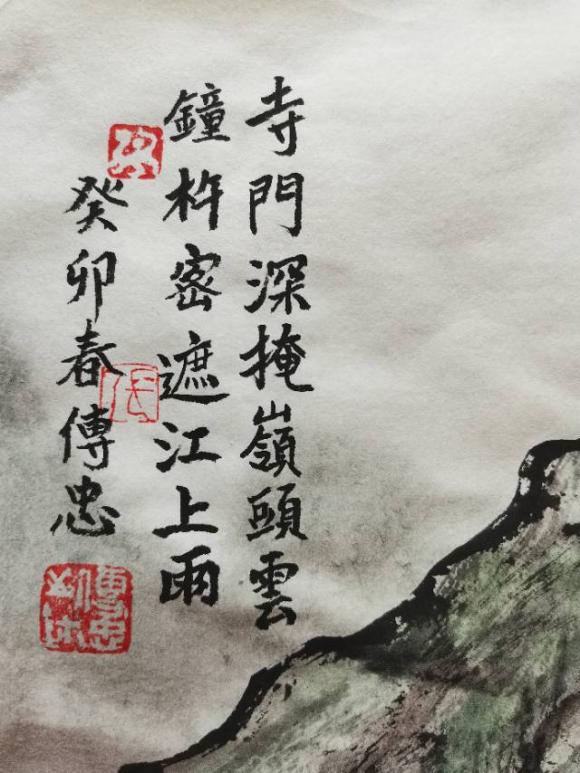 寺門深掩嶺頭雲
鐘杵密遮江上雨
癸卯春傳忠